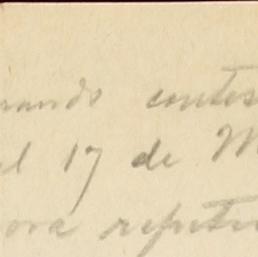 rando contes
el 17 de M
ora repeti